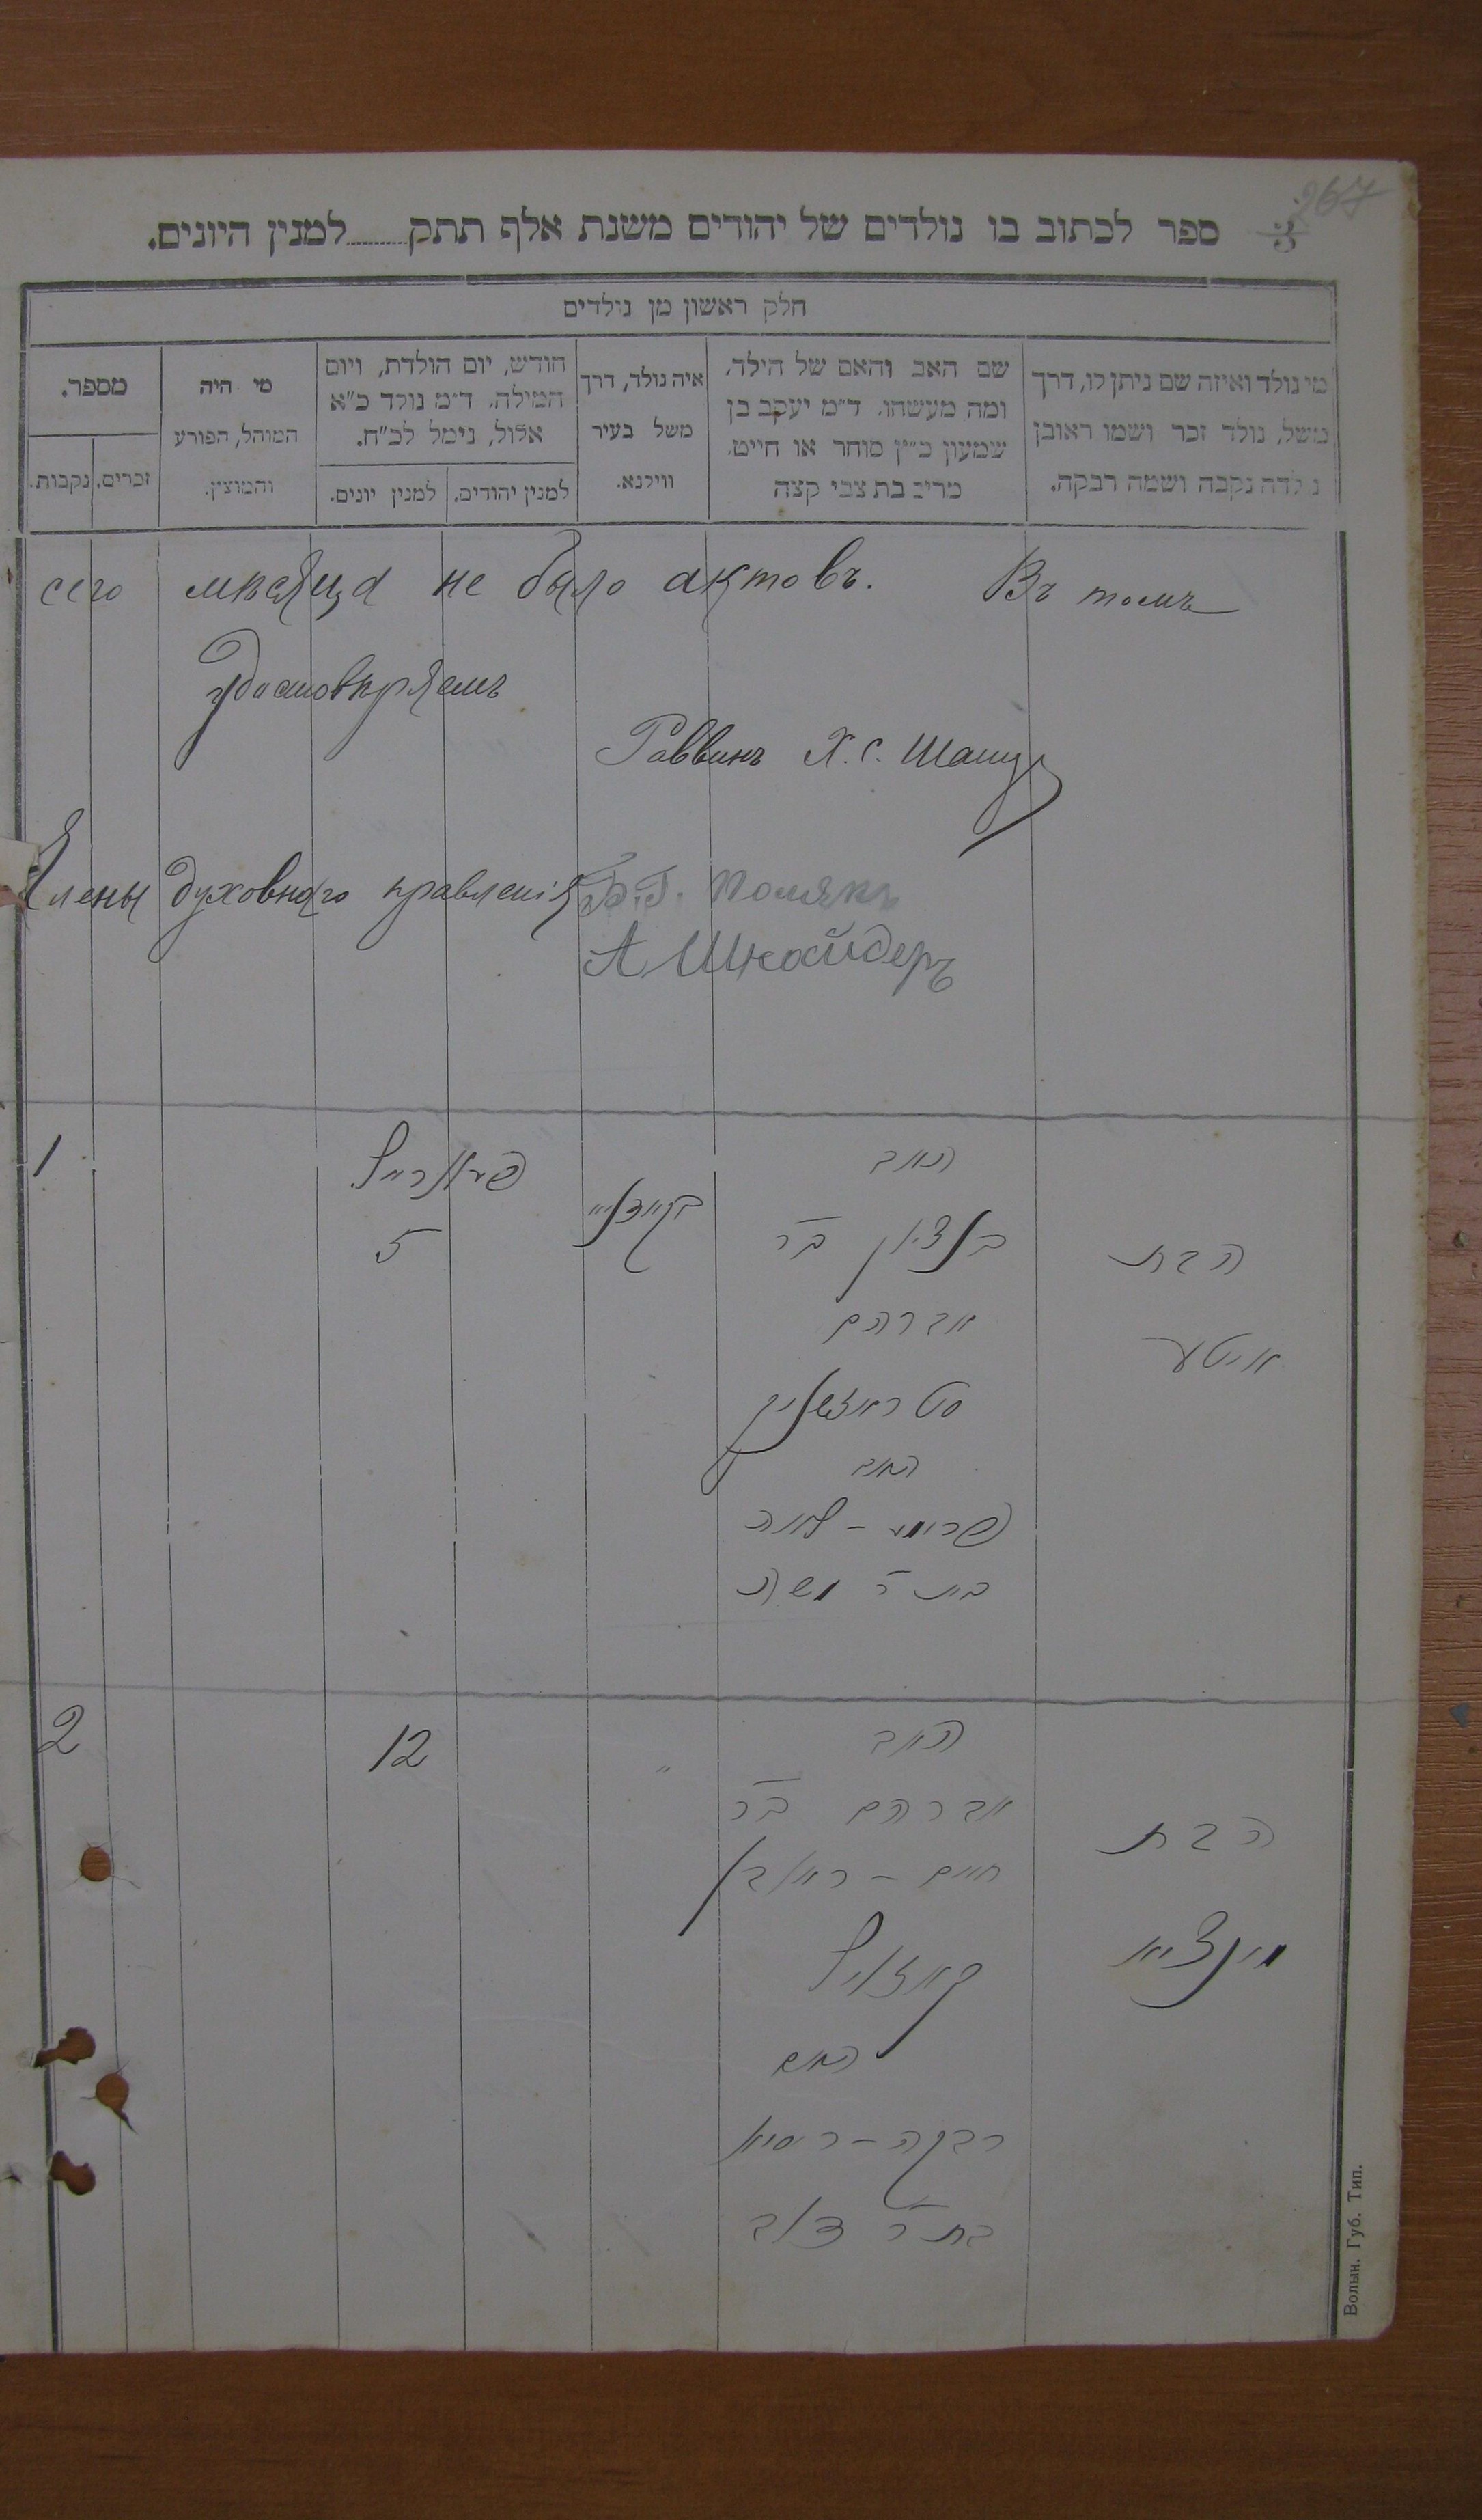 267
3
ספר לכתוב בו נולדים של יהודים משנת אלף תתק........למנין היונים.
חלק ראשון מן נולדים
מי נולד ואיזה שם ניתן לו, דרך
משל, נולד זכר ושמו ראובן
נולדה נקבה ושמה רבקה.
שם האב והאם של הילד,
ומה מעשהו. ד"מ יעקב בן
שמעון כ"ץ סוחר או חייט.
מרים בת צבי קצה
איה נולד, דרך
משל בעיר
ווילנא.
חודש, יום הולדת, ויום
המילה. ד"מ נולד כ"א
אלול, נימל לכ"ח.
למנין יהודים.
למנין יונים.
מי היה
המוהל, הפורע
והמוצץ.
מספר.
זכרים.
נקבות.
сего мѣсяца не было актовъ. Въ томъ
удостовѣряемъ
Раввинъ Х. С. Шапи
Члены духовного правленія Полякъ
А Шнайдеръ
הבת
איטע
האב
בנציון בר
אברהם
האם
בת ר משה
פעווראל
5
1
הבת
האב
אברהם בר
חיים - ראובן
האם
רבקה - ראסיא
בת ר דוב
"
12
2
Волын. Губ. Тип.